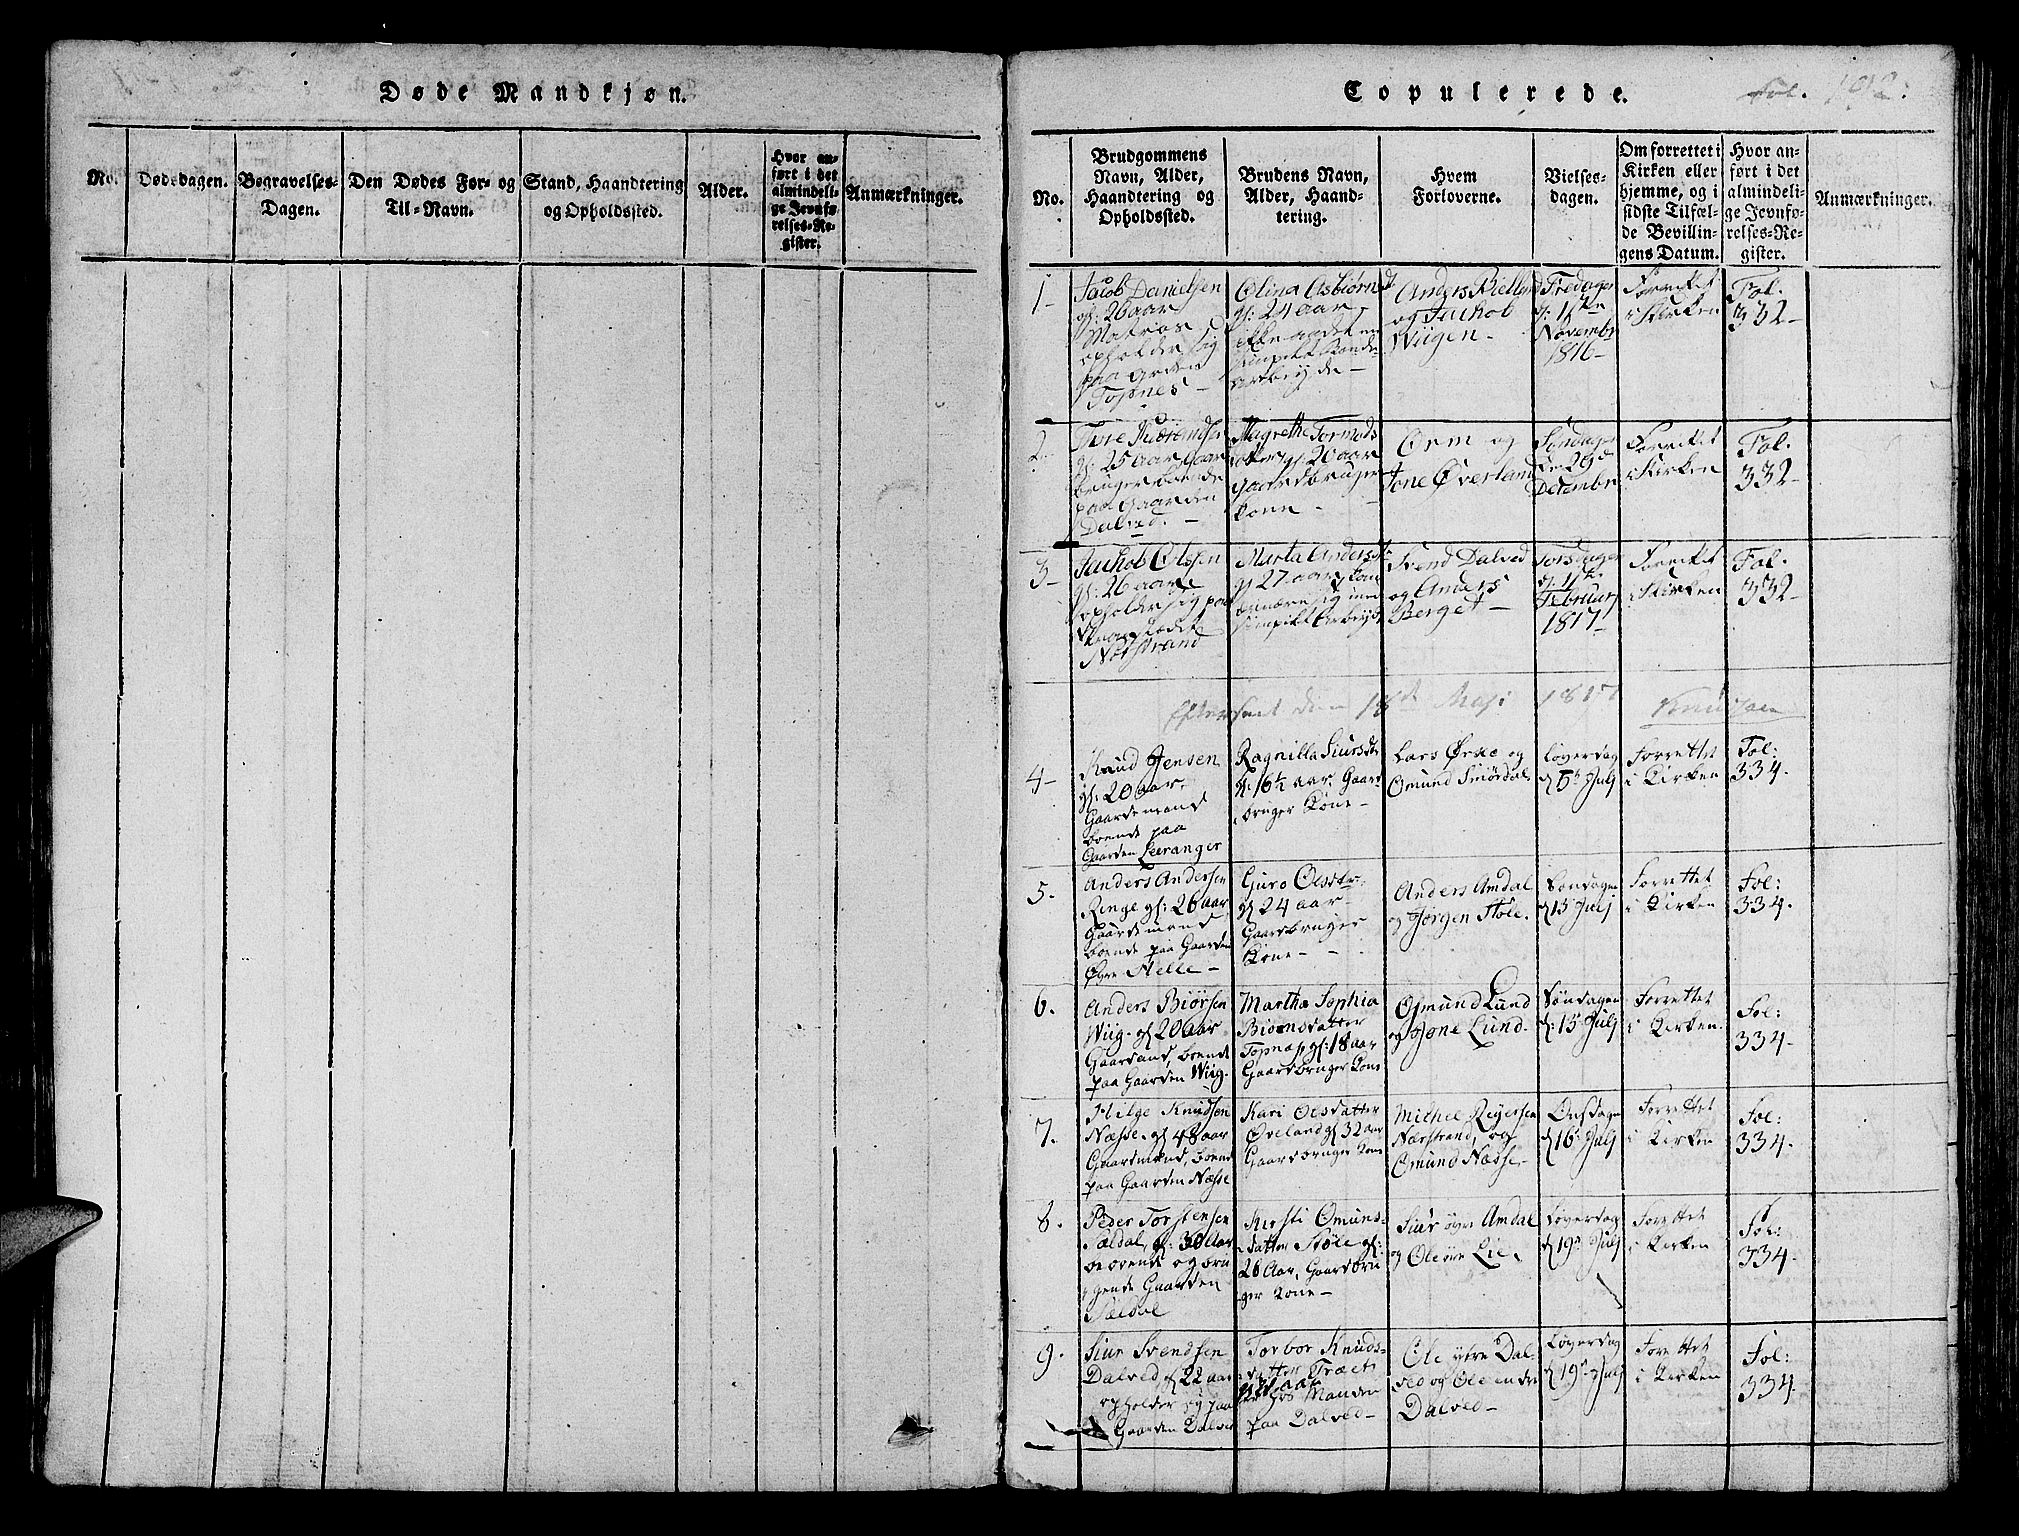 Døde Mandkjøn.
No.
Dødsdagen.
Begravelses-
Dagen.
Den Dødes For- og
Til-Navn.
Stand, Haandtering
og Opholdssted.
Alder.
Hvor an-
ført i det
almindeli-
ge Jevnfø-
relses-Re-
gister.
Anmærkninger.
Copulerede.
Fol. 192.
No.
Brudgommens
Navn, Alder,
Haandtering og
Opholdssted.
Brudens Navn,
Alder, Haand-
tering.
Hvem
Forloverne.
Vielses-
dagen.
Om forrettet i
Kirken eller
hjemme, og i
sidste Tilfæl-
de Bevillin-
gens Datum.
Hvor an-
ført i det
almindeli-
ge Jevnfø-
relses-Re-
gister.
Anmærkninger.
1-
Jacob Danielsen
gl: 26 aar
Matros
opholder sig
paa
Topnes -
Olina Asbiørns
gl: 24 aar
arbeyde -
Anders Kielland
og Jackob
Wiigen -
Fredagen
Novembr
1816-
Forrettet
i Kirken
Fol.
332-
2-
gl: 25 aar Gaar
bruger boende
paa Gaarden
Dalved. -
Magrethe Tormods
gl: 20 aar
gaardbruger
kone -
Orm og
Jone Øverland
Søndagen
29
Decembr
Forrettet
i Kirken
Fol.
332-
3-
Jackob Olsen
gl: 26 aar
opholder sig paa
Nærstrand
Marta Anders
gl 27 aar kan
ernære sig med
arbeyd
Svend Dalved
og Anders
Berget -
Torsdagen
Februarj
1817-
Forrettet
i Kirken
Fol.
332-
Efterseet den 18de Maji 1817 Knudsen
4-
Knud Jensen
gl: 20 aar,
Gaardemand
boende paa
Gaarden Leeranger
Ragnilla Siursdtr
gl: 16½ aar, Gaard-
bruger Kone -
Lars Ørke og
Omund Smørdal
Løverdag
d 5te Julj
Forrettet
i Kirken
Fol:
334.
5.
Anders Andersen
Ringe gl: 26 aar
Gaardemand
boende paa Gaarden
Øvre Helle -
Guro Olsdtr.
gl 24 aar -
Gaardbruger
Kone -
Anders Amdal
og Jørgen Støle.
Søndagen
d 13 Julj
Forrettet
i Kirken
Fol:
334.
6.
Anders Biørsen
Wiig. gl 20 aar
Gaardmand, boende
paa Gaarden Wiig.
Martha Sophia
Biørnsdatter
Topnæs, gl: 18 aar
Gaardbruger Kone
Osmund Lund
og Jone Lund.
Søndagen
d: 13 Julj
Forrettet
i Kirken.
Fol:
334.
7.
Hilge Knudsen
Næsse. gl 48 aar
Gaardmand, boende
paa Gaarden Næsse
Kari Olsdatter
Øveland gl 32 aar
Gaardbruger Kone
Mithel Reiersen
Nærstrand, og
Omund Næsse.
Onsdagen
d 16 Julj
Forrettet
i Kirken
Fol:
334.
8.
Peder Torstensen
Sældal, gl: 30 aar
beboende og bru
gende Gaarden
Sældal
Kirsti Omunds-
datter Støle gl:
26 Aar, Gaardbru
ger Kone -
Siur øvre Amdal
og Ole øvre Lie.
Løverdag
d 19de Julj
Forrettet
i Kirken
Fol:
334.
9.
Siur Svendsen
Dalved gl 22 aar
opholder sig paa
Gaarden Dalved
Torbor Knuds-
datter Træet
hos Manden
paa Dalved -
Ole ytre Dal-
ved og Ole
Dalved -
Løverdag
d 19de Julj
Forrettet
i Kirken
Fol:
334.